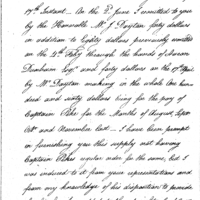 17th Instant. On the 2d June I remitted to you
by the Honorable Mr. J Dayton forty dollars
in addition to Eighty dollars previously remitted
on the 24th Feby through the hands of Aaron
Dunham Esqr. and forty dollars on the 17th April
by Mr Dayton making in the whole One hun
dred and sixty dollars being for the pay of
Captain Pike for the Months of August, Sept
Octr and November last. I have been prompt
in furnishing you this supply not having
Captain Pikes regular order for the same, but I
was induced to it from your representations and
from my knowledge of his disposition to provide